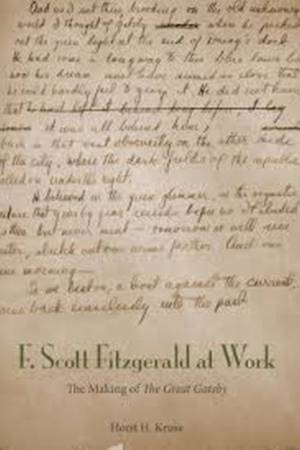 as I sat there brooding on the old unknown
world I thought of Gatsby when he picked
out the green light at the end of Daisy's dock.
He had come a long way to this blue lawn
now his dream must have seemed so close that
he could hardly fail to grasp it. He did not know
that he had left it behind long before, I say
it was all behind him,
back in that vast obscurity on the other side
of the city, where the dark fields of the republic
rolled on under the night.
He believed in the green glimmer, in the orgastic
future that year by year recedes before us. It eluded
us then but never mind — tomorrow we will run
faster, stretch out our arms farther. And one
fine morning —
So we beat on, a boat against the current,
borne back ceaselessly into the past
F. Scott Fitzgerald at Work
The Making of The Great Gatsby
Horst H. Kruse